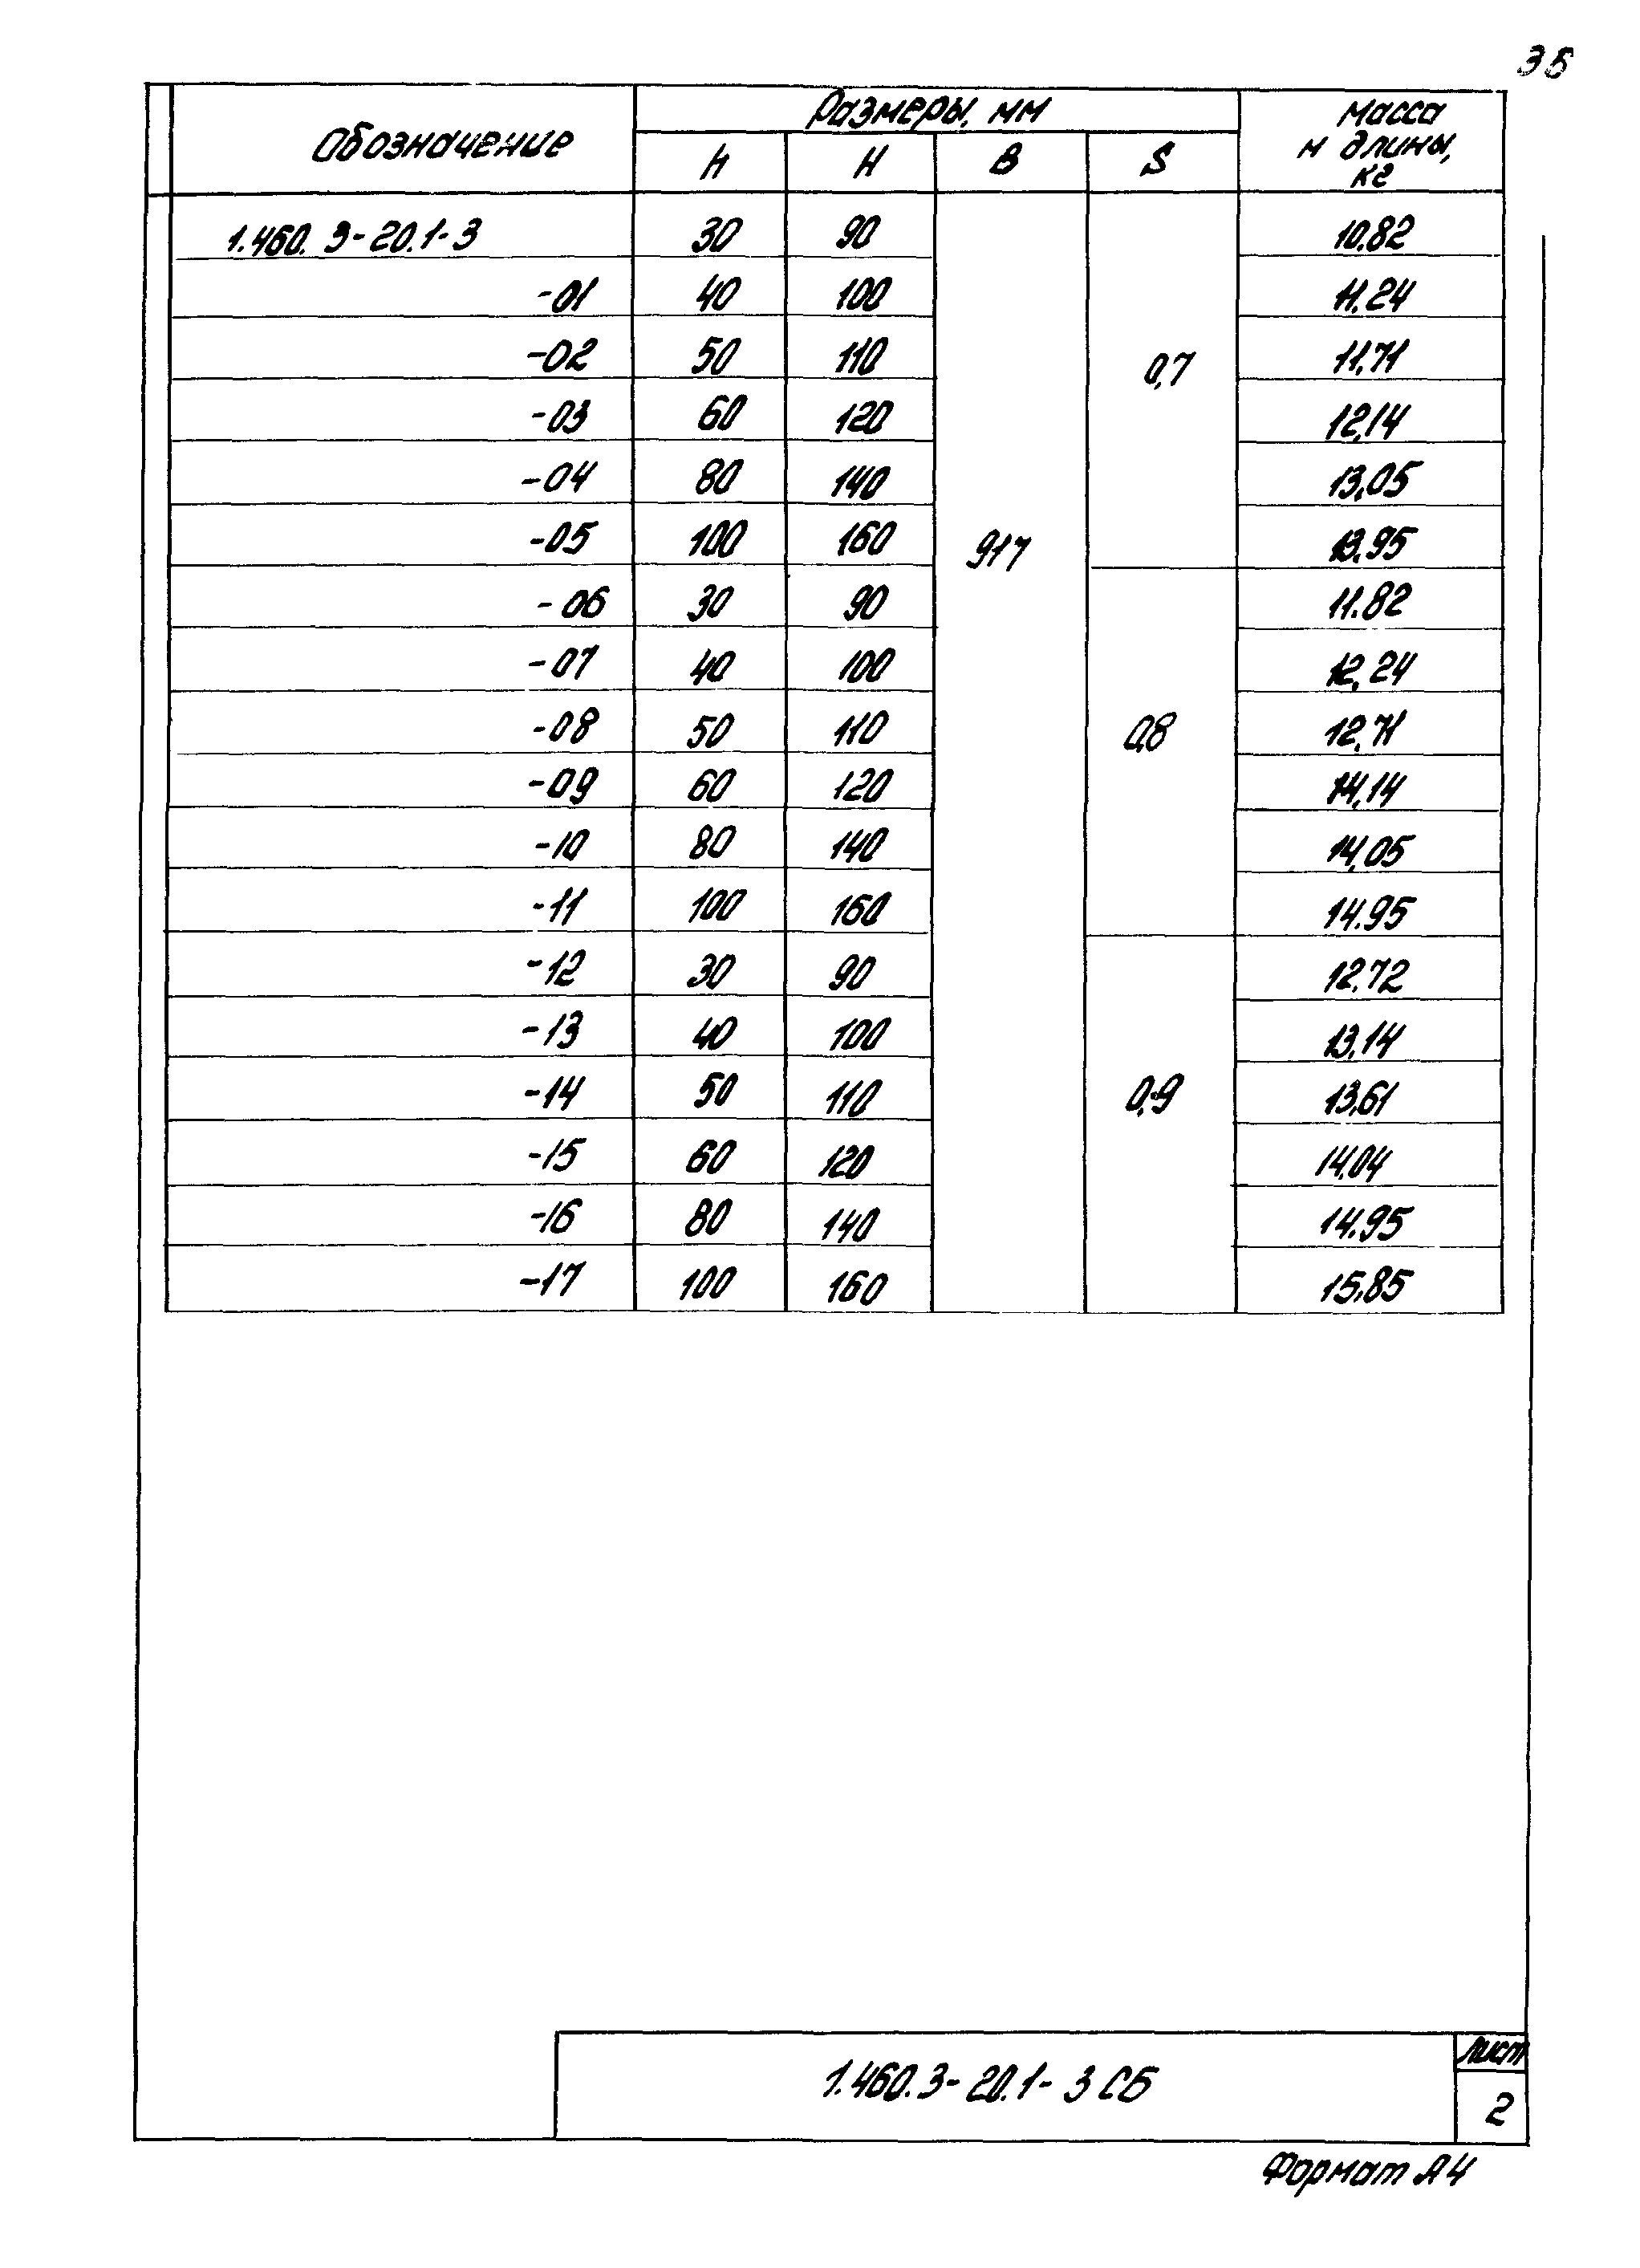 35
Обозначение Размеры, мм Масса м длины, кг
h H B S
1.460.3-20.1-3 30 90 917 0,7 10.82
-01 40 100 11.24
-02 50 110 11,71
-03 60 120 12,14
-04 80 140 13,05
-05 100 160 13,95
-06 30 90 0,8 11.82
-07 40 100 12,24
-08 50 110 12,71
-09 60 120 14,14
-10 80 140 14,05
-11 100 160 14.95
-12 30 90 0,9 12.72
-13 40 100 13,14
-14 50 110 13,61
-15 60 120 14,04
-16 80 140 14.95
-17 100 160 15.85
1.460.3-20.1-3 СБ
Лист
2
Формат А4